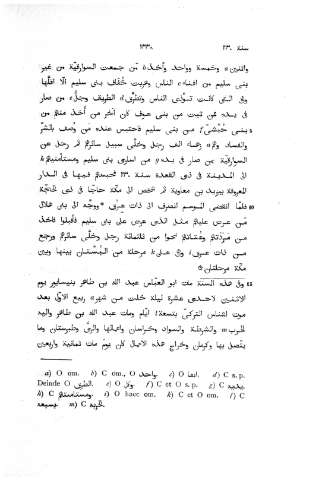 سنة ٢٣٠ ١٣٣٨
واثنين وخمسة وواحد وأخذ من جمعت السوارقيّة من غير
بنى سليم من افناء الناس وهربت خُفاف بنى سليم الّا اقلّها
وفى التى كانت تؤذى الناس وتطرق الطريف وجلّ من صار
فى يده ممن ثبت من بنى عوف كان آخر من أخذ منهم من
بنى حُبْشىّ من بنى سليم فاحتبس عنده من وصف بالشرّ
والفساد وهم زهاء الف رجل وخلّى سبيل سائرهم ثم رحل عن
السوارقيّة بمن صار فى يده من اسارى بنى سليم ومستأمنيهم
الى المدينة فى ذى القعدة سنة ٢٣٠ فحبسهم فيها فى الدار
المعروفة بيزيد بن معاوية ثم شخص الى مكّة حاجّا فى ذى الحجّة
فلمّا انقضى الموسم انصرف الى ذات عرق ووجّه الى بنى هلال
من عرض عليهم مثل الذى عرض على بنى سليم فأقبلوا فأخذ
من مردتهم وعُتاتهم نحوا من ثلثمائة رجل وخلّى سائرهم ورجع
من ذات عرق وهى على مرحلة من البُستان بينها وبين
مكّة مرحلتان
وفى هذه السنة مات ابو العبّاس عبد الله بن طاهر بنيسابور يوم
الاثنين لاحدى عشرة ليلة خلت من شهر ربيع الاوّل بعد
موت اشناس التركىّ بتسعة ايّام ومات عبد الله بن طاهر واليه
الحرب والشرطة والسواد وخراسان واعمالها والرىّ وطبرستان وما
يتّصل بها وكرمان وخراج هذه الاعمال كان يوم مات ثمانية واربعين
a) O om. b) C om., O وواحد. c) O افنا. d) C s. p.
Deinde O الطرق. e) O وكل. f) C et O s. p. g) C
h) C i) O haec om. k) C et O om. l) C
m) C